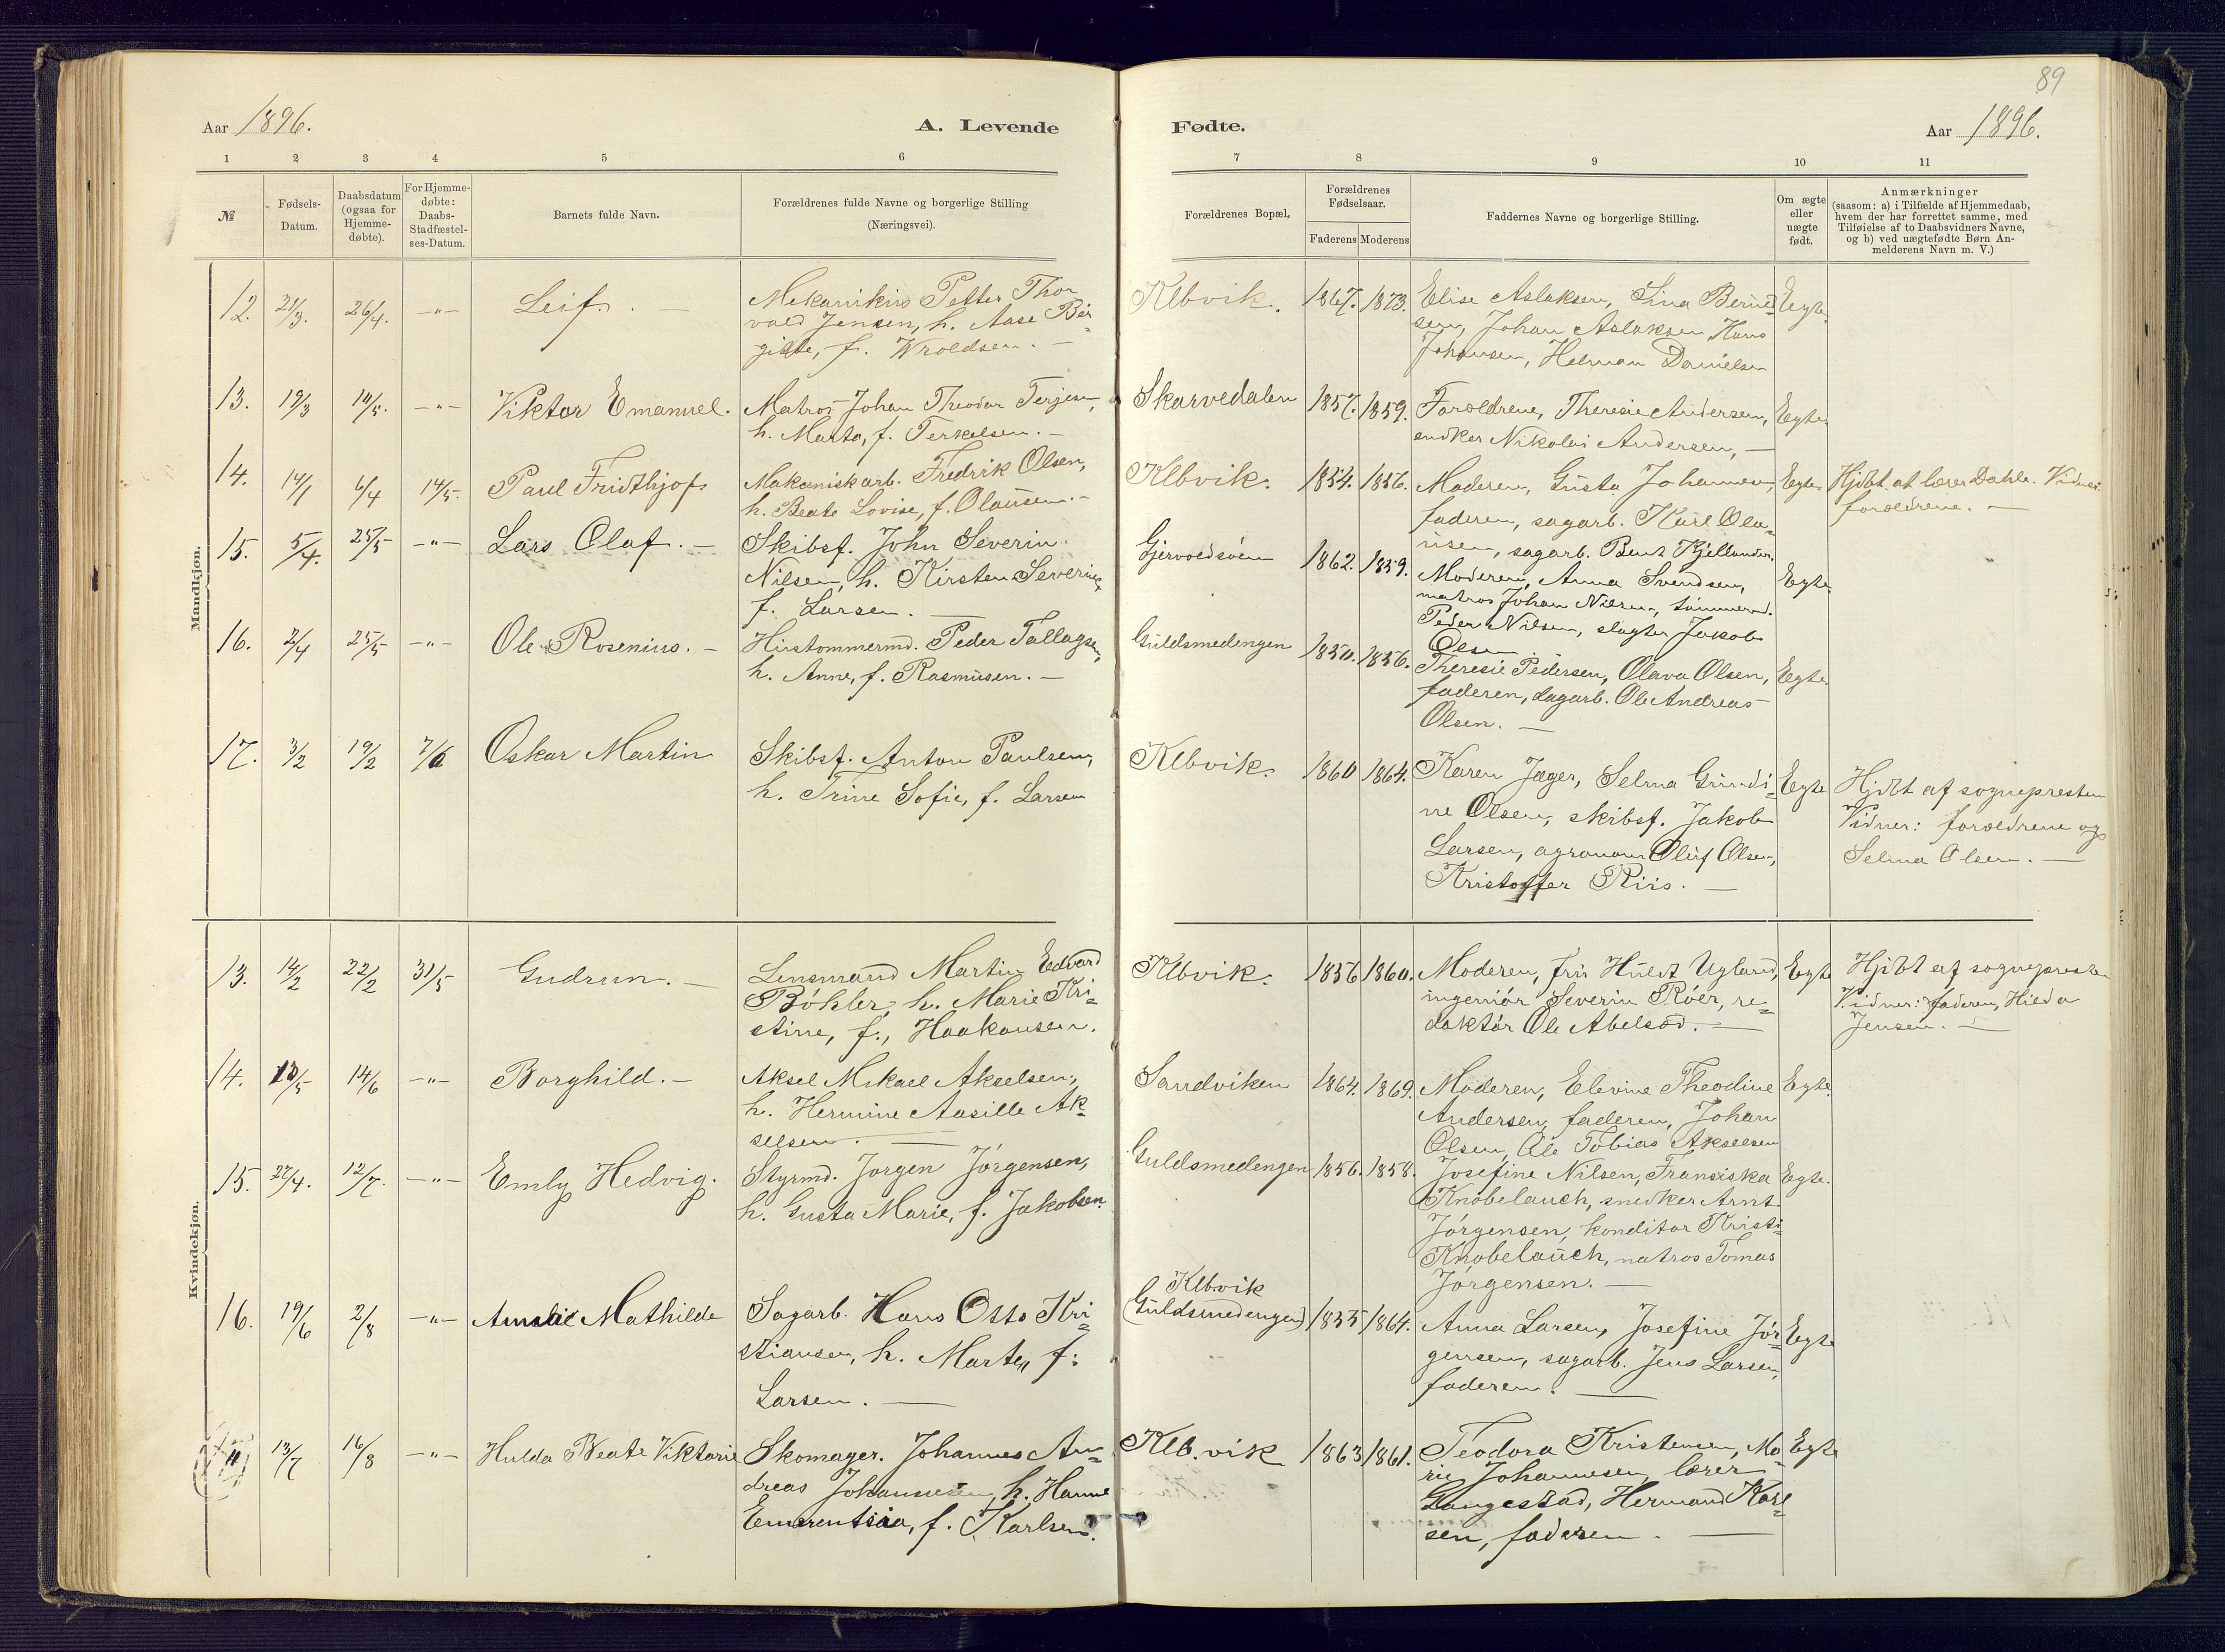 89
Aar 1896. A. Levende Fødte. Aar 1896.
1 2 3 4 5 6 7 8 9 10 11
№
Fødsels-
Datum.
Daabsdatum
(ogsaa for
Hjemme-
døbte).
For Hjemme-
døbte:
Daabs-
Stadfæstel-
ses-Datum.
Barnets fulde Navn.
Forældrenes fulde Navne og borgerlige Stilling
(Næringsvei).
Forældrenes Bopæl.
Forældrenes
Fødselsaar.
Faderens Moderens
Faddernes Navne og borgerlige Stilling.
Om ægte
eller
uægte
født.
Anmærkninger
(saasom: a) i Tilfælde af Hjemmedaab,
hvem der har forrettet samme, med
Tilføielse af to Daabsvidners Navne,
og b) ved uægtefødte Børn An-
melderens Navn m. V.)
Mandkjøn.
12. 21/3. 26/4. -"- Leif. -
Mekanikus Petter Thor
vald Jensen, h. Aase Bir-
gitte, f. Wroldsen. -
Klbvik. 1867. 1873.
Elise Aslaksen, Lina Bernt-
sen, Johan Aslaksen Hans
Johansen, Helman Danielsen
Egte.
13. 19/3 10/5. -"- Viktor Emanuel.
Matros Johan Theodor Terjesen,
h. Marta, f. Terkelsen. -
Skarvedalen 1857. 1859.
Forældrene, Theresie Andersen,
sndker Nikolai Andersen, -
Egte.
14. 14/1 6/4 14/5. Paul Fridthjof
Mekaniskarb. Fredrik Olsen,
h. Beate Lovise, f. Olausen. -
Klbvik. 1854. 1856.
Moderen, Gusta Johansen,
faderen, sagarb. Karl Ola-
usen, sagarb. Bent Kjellandsen.
Egte.
Hjdbt af lærer Dahle. Vidner:
forældrene. -
15. 5/4. 25/5 -"- Lars Olaf. -
Skibsf. John Severin
Nilsen, h. Kirsten Severine,
f. Larsen. -
Gjervoldsøen 1862. 1859.
Moderen, Anna Svendsen,
matros Johan Nilsen, tømmermd.
Peder Nilsen, slagter Jakob
Olsen
Egte.
16. 2/4 25/5 -"- Ole Rosenius. -
Hustommermd. Peder Tallagsen,
h. Anne, f. Rasmusen. -
Guldsmedengen 1850. 1856.
Theresie Pedersen, Olava Olsen,
faderen, dagarb. Ole Andreas
Olsen. -
Egte.
17. 3/2 19/2 7/6 Oskar Martin
Skibsf. Anton Paulsen,
h. Trine Sofie, f. Larsen
Klbvik. 1860 1864.
Karen Jæger, Selma Gundi-
ne Olsen, skibsf. Jakob
Larsen, agronom Oluf Olsen,
Kristoffer Riis. -
Egte
Hjdbt af sognepresten
Vidner: forældrene og
Selma Olsen. -
Kvindekjøn.
13. 14/2 22/2 31/5 Gudrun. -
Lensmand Martin Edvard
Bóhler, h. Marie Kri-
stine, f., Haakonsen.
Klbvik. 1856 1860.
Moderen, fru Huldt Ugland,
ingeniór Severin Róer, re-
daktór Ole Abelsød. -
Egte
Hjdbt af sognepresten
Vidner: faderen, Hilda
Jensen. -
14. 10/5 14/6 -"- Borghild. -
Aksel Mikael Akselsen,
h. Hermine Aasille Ak-
selsen. -
Sandviken 1864. 1869.
Moderen, Elevine Theodine
Andersen, faderen, Johan
Olsen, Ole Tobias Akselsen
Egte.
15. 27/4. 12/7. -"- Emly Hedvig.
Styrmd. Jorgen Jórgensen,
h. Gusta Marie, f. Jakobsen.
Guldsmedengen 1856. 1858.
Josefine Nilsen, Fransiska
Knobelauch, snedker Arnt
Jórgensen, konditor Kristi-
Knobelauch, matros Tomas
Jórgensen. -
Egte.
16. 19/6 2/8 -"- Amalie Mathilde
Sagarb. Hans Otto Kri-
stiansen, h. Marte, f.
Larsen. -
Klbvik
(Guldsmedengen) 1855 1864.
Anna Larsen, Josefine Jór-
gensen, sagarb. Jens Larsen,
faderen. -
Egte
13/7 16/8 -"- Hulda Beate Viktorie
Skomager. Johannes An-
dreas Johannesen, h. Hanne
Emerentsia, f. Karlsen.
Klb.vik 1863 1861.
Teodora Kristensen, Ma-
rie Johannesen, lærer
Langestad, Hermand Karl-
sen, faderen. -
Egte